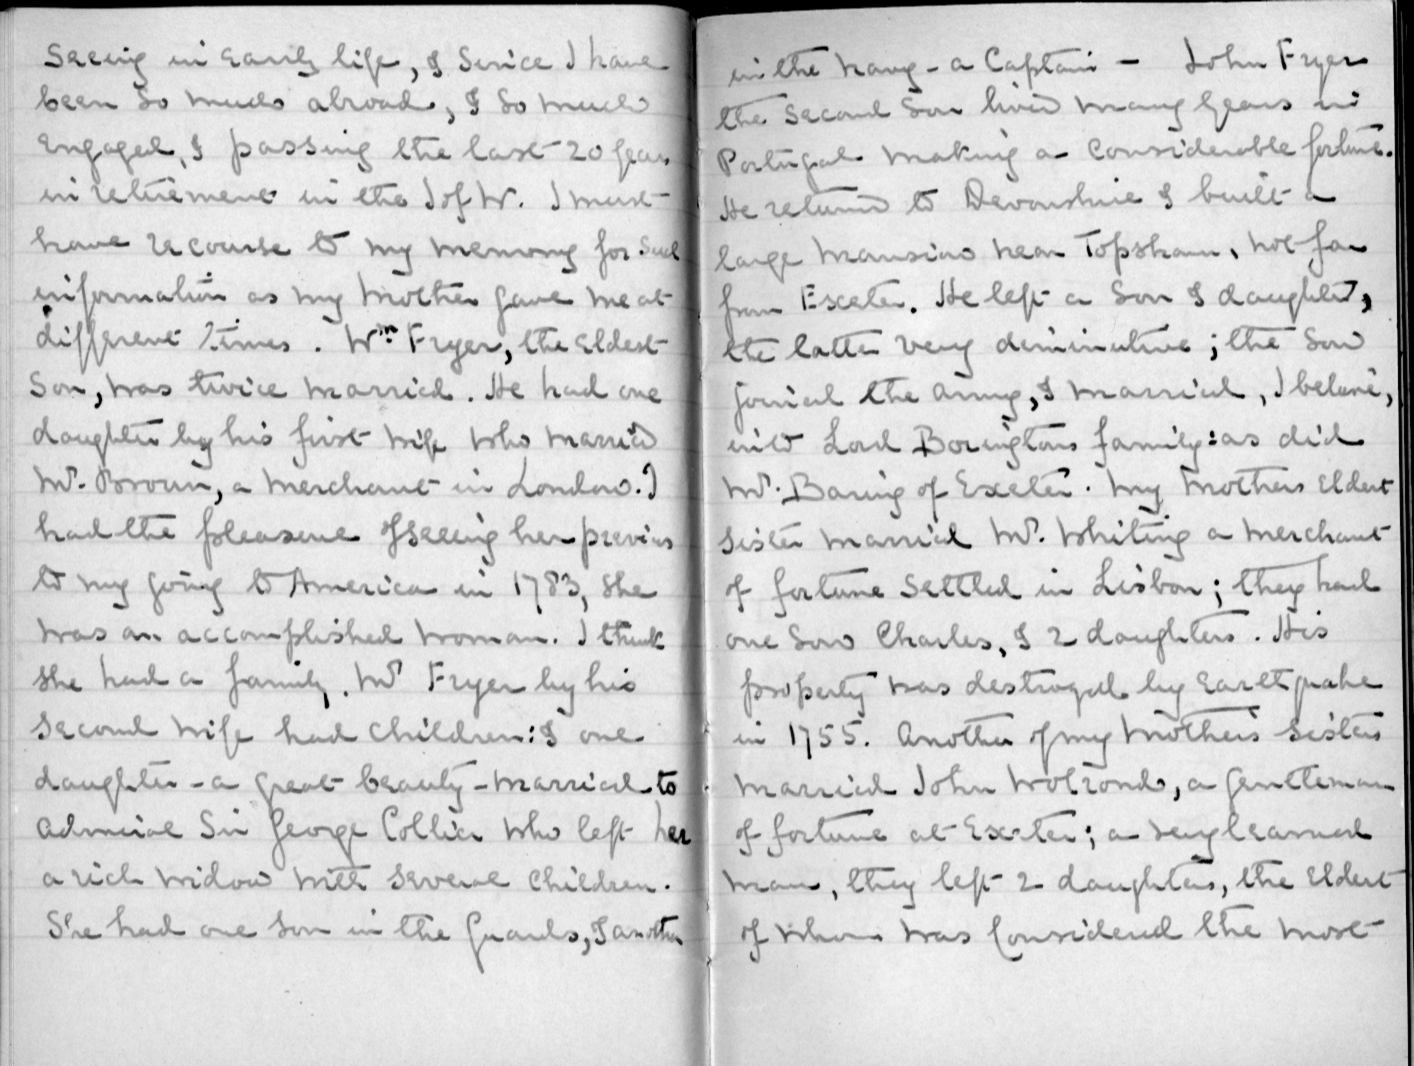 Seeing in early life, & since I have
been so much abroad, & so much
engaged, & passing the last 20 years
in retirement in the I of W. I must
have recourse to my memory for such
information as my Mother gave me at
different times. Wm Fryer, the eldest
Son, was twice married. He had one
daughter by his first wife who married
Mr. Broun, a Merchant in London. I
had the pleasure of seeing her previous
to my going to America in 1783, she
was an accomplished woman. I think
she had a family. Mr Fryer by his
second wife had children: & one
daughter - a great beauty - married to
Admiral Sir George Collier who left her
a rich widow with several children.
She had one son in the Guards, & another
in the Navy - a Captain - John Fryer
the second Son lived many years in
Portugal making a considerable fortune.
He returned to Devonshire & built a
large Mansion near Topsham, not far
from Exeter. He left a Son & daughter,
the latter very diminutive; the Son
joined the Army, & married, I believe,
into Lord Boringtons family: as did
Mr. Baring of Exeter. My Mothers eldest
sister married Mr. Whiting a merchant
of fortune settled in Lisbon; they had
one Son Charles, & 2 daughters. His
property was destroyed by Earthquake
in 1755. Another of my Mother's Sisters
married John Wolrond, a gentleman
of fortune at Exeter; a very learned
man, they left 2 daughters, the eldest
of whom was considered the most